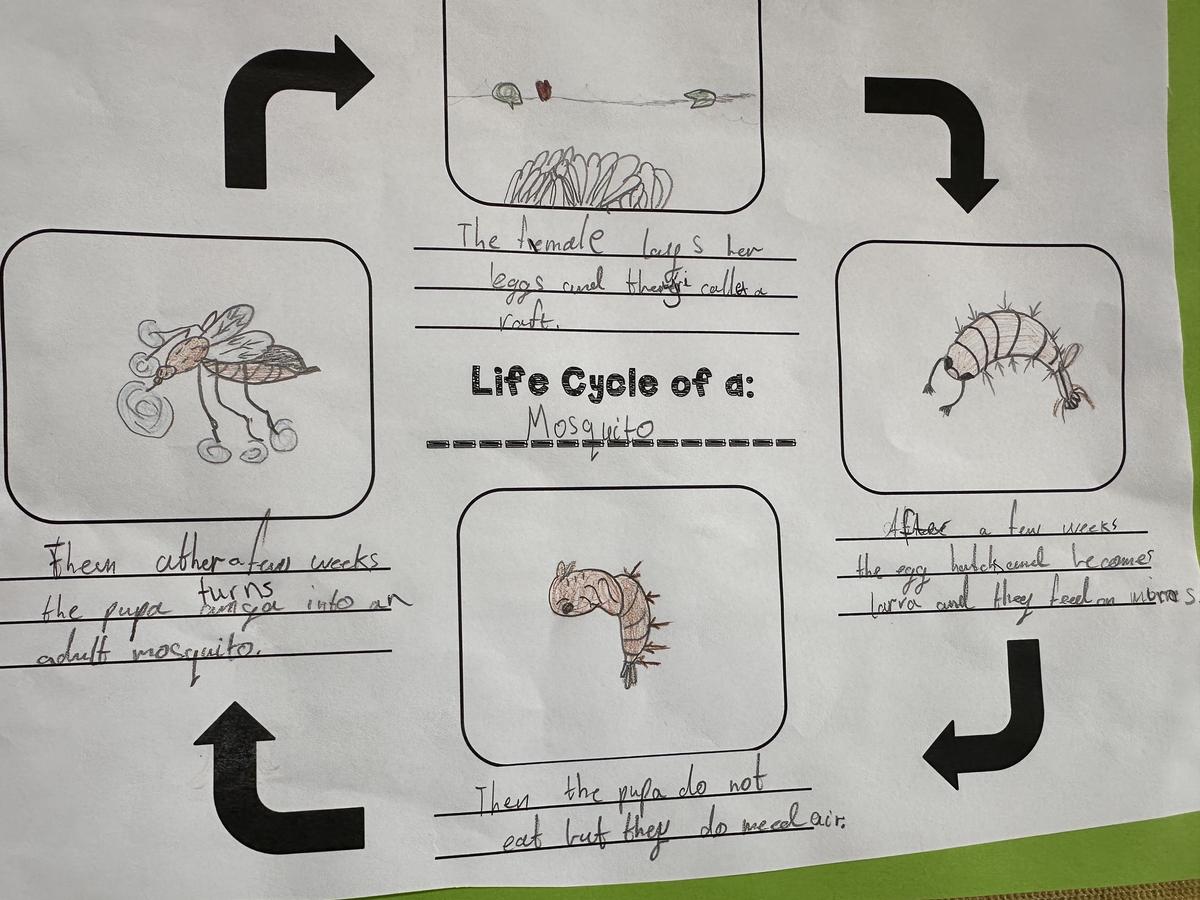 The female lays her
eggs and they call a
raft.
Life Cycle of a:
Mosquito
After a few weeks
the egg hatch and becomes
larva and they feed on
Then the pupa do not
eat but they do need air.
Then after a few weeks
the pupa turns into an
adult mosquito.